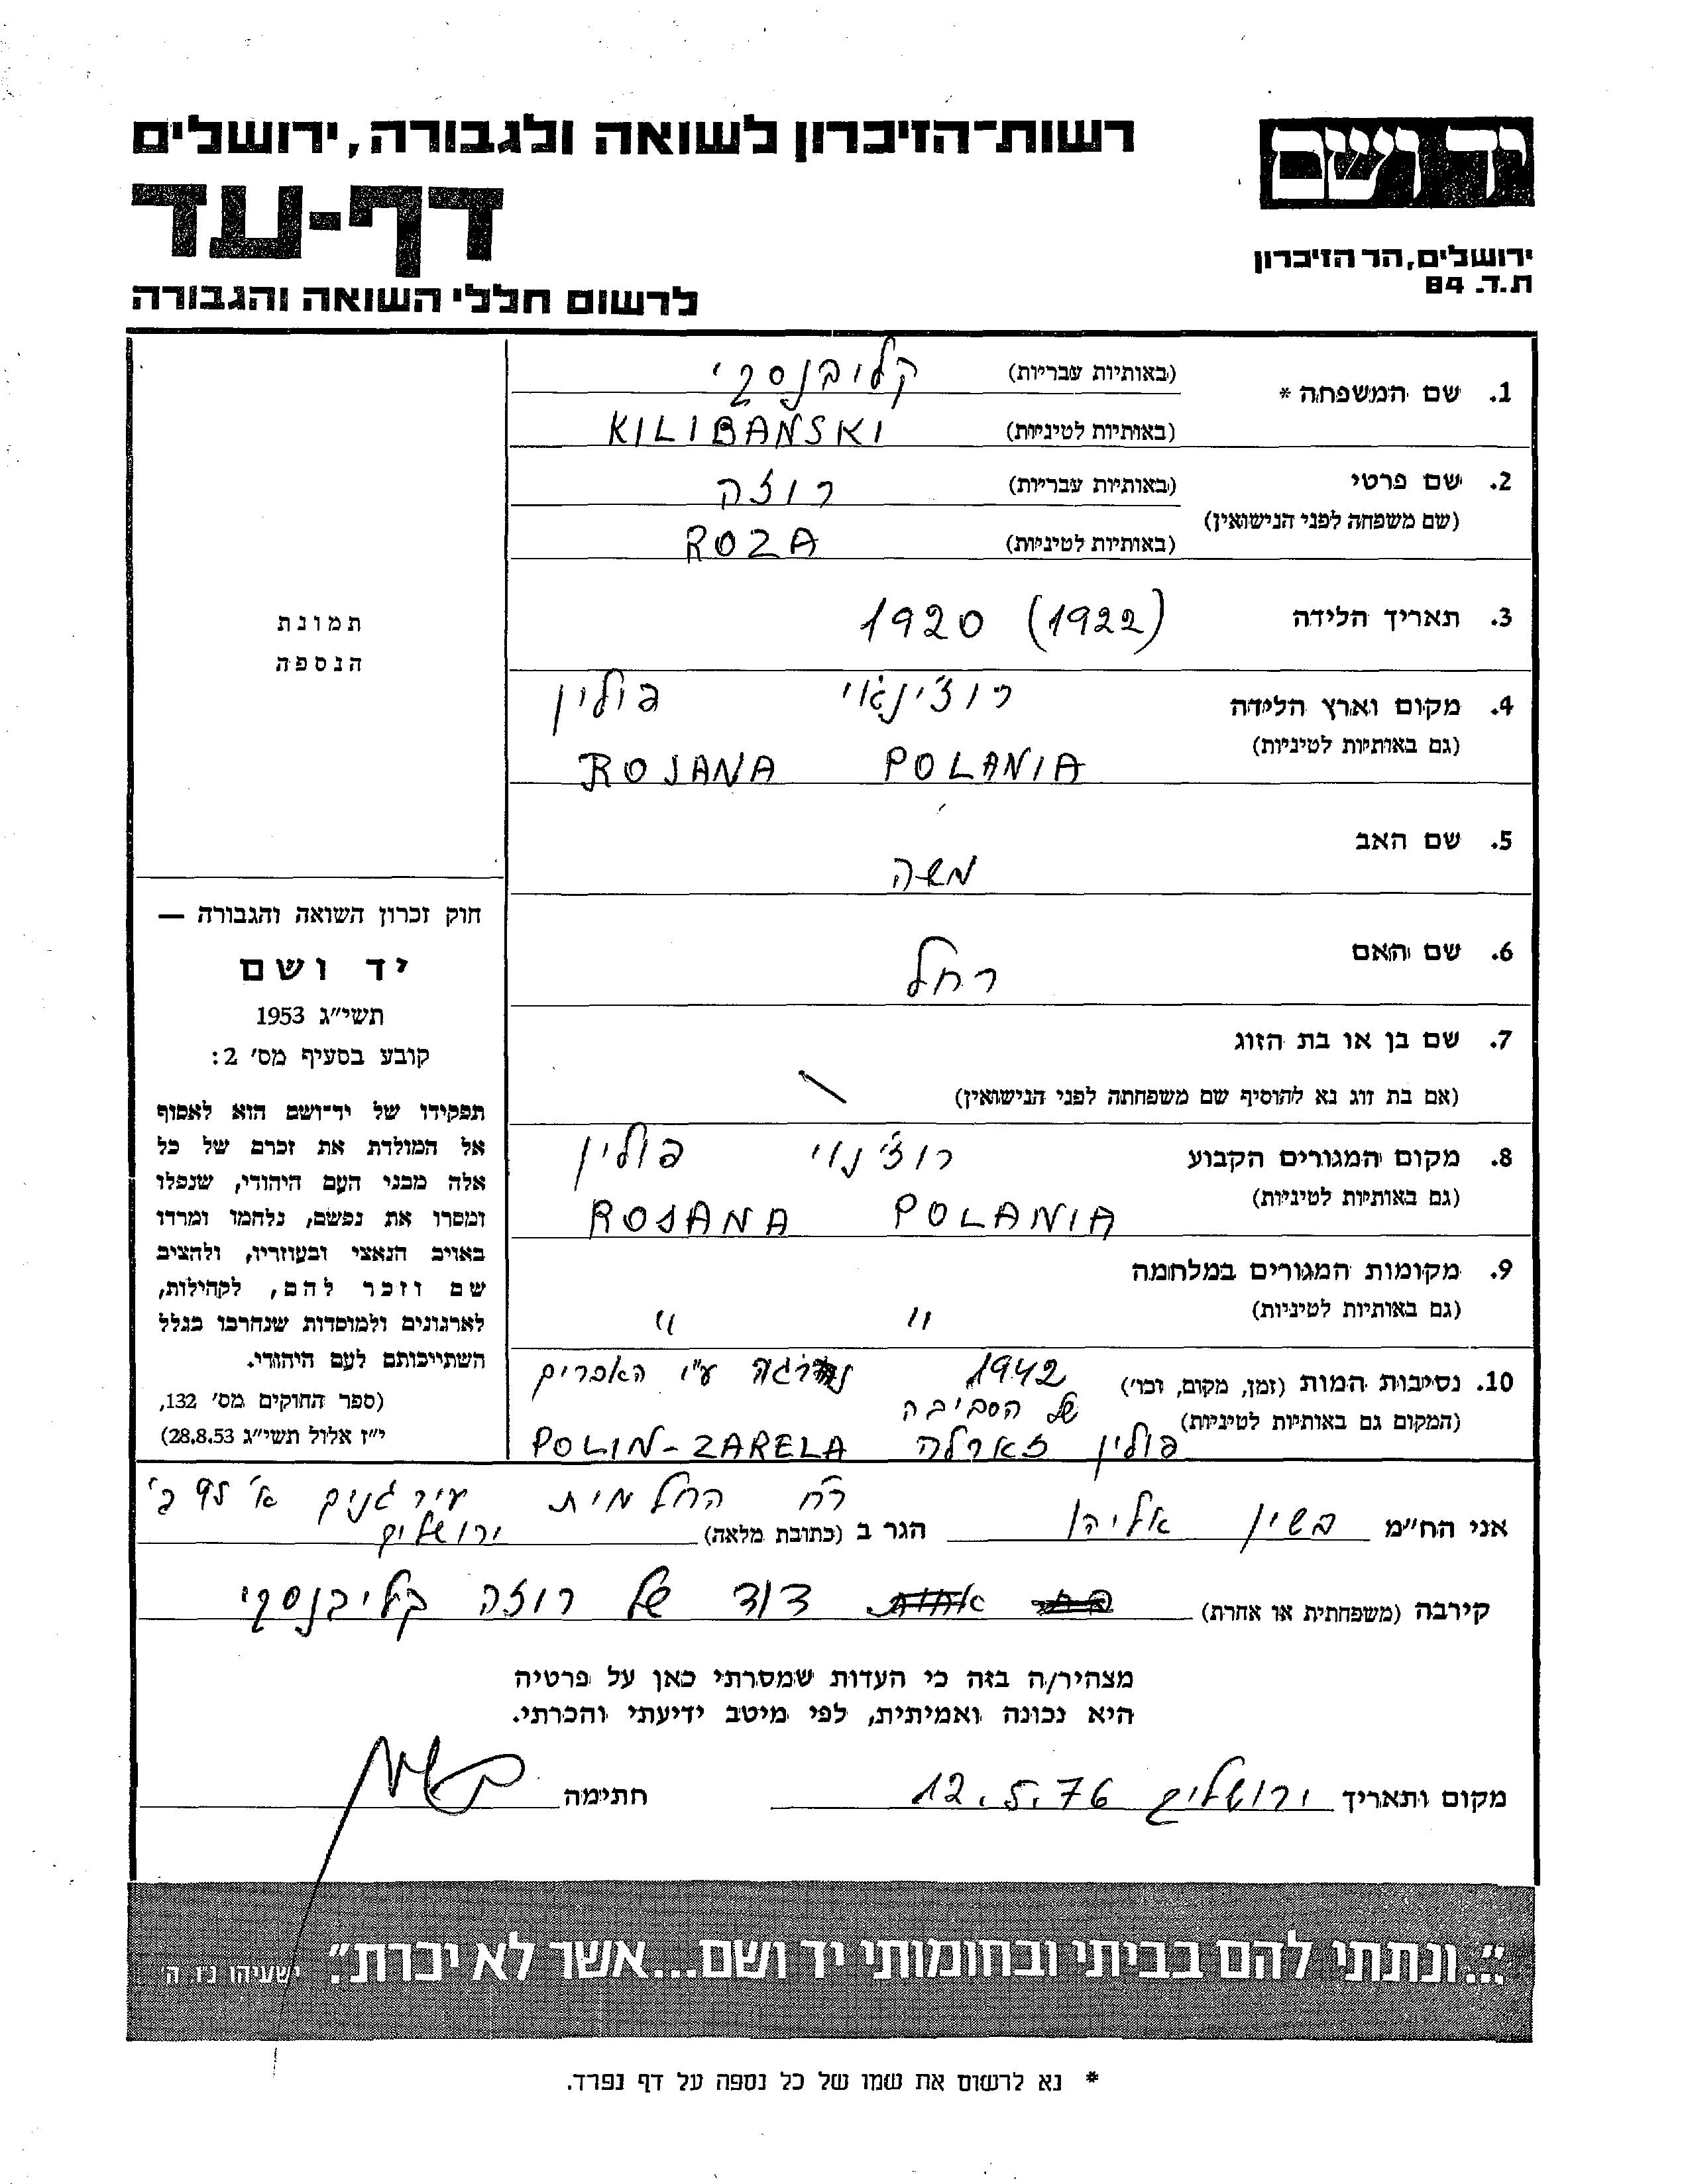 יד ושם
ירושלים, הר הזיכרון
ת.ד. 84
רשות־הזיכרון לשואה ולגבורה, ירושלים
דף-עד
לרשום חללי השואה והגבורה
1. שם המשפחה * (באותיות עבריות) קליבנסקי
(באותיות לטיניות) KILIBANSKI
2. שם פרטי (באותיות עבריות) רוזה
(שם משפחה לפני הנישואין)
(באותיות לטיניות) ROZA
3. תאריך הלידה 1920 (1922)
4. מקום וארץ הלידה רוצ'ינאוי פולין
(גם באותיות לטיניות)
ROJANA POLANIA
5. שם האב
משה
6. שם האם
רחל
7. שם בן או בת הזוג
(אם בת זוג נא להוסיף שם משפחתה לפני הנישואין)
8. מקום המגורים הקבוע רוצ'נוי פולין
(גם באותיות לטיניות)
ROJANA POLANIA
9. מקומות המגורים במלחמה
(גם באותיות לטיניות) " "
10. נסיבות המות (זמן, מקום, וכו') 1942 ע"י האכרים
של הסביבה
(המקום גם באותיות לטיניות)
פולין זארלה POLIN-ZARELA
תמונת
הנספה
חוק זכרון השואה והגבורה —
יד ושם
תשי"ג 1953
קובע בסעיף מס' 2:
תפקידו של יד־ושם הוא לאסוף
אל המולדת את זכרם של כל
אלה מבני העם היהודי, שנפלו
ומסרו את נפשם, נלחמו ומרדו
באויב הנאצי ובעוזריו, ולהציב
שם וזכר להם, לקהילות,
לארגונים ולמוסדות שנחרבו בגלל
השתייכותם לעם היהודי.
(ספר החוקים מס' 132,
י"ז אלול תשי"ג 28.8.53)
אני הח"מ פשין אליהו הגר ב (כתובת מלאה) רח' החלמית עיר גנים א'
ירושלים
קירבה (משפחתית או אחרת) דוד של רוזה קליבנסקי
מצהיר/ה בזה כי העדות שמסרתי כאן על פרטיה
היא נכונה ואמיתית, לפי מיטב ידיעתי והכרתי.
מקום ותאריך ירושלים 12.5.76 חתימה
"...ונתתי להם בביתי ובחומותי יד ושם...אשר לא יכרת". ישעיהו נ"ו ה'
* נא לרשום את שמו של כל נספה על דף נפרד.